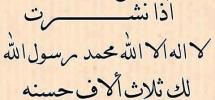 اذا نشرت
لا اله الا الله محمد رسول الله
لك ثلاث ألاف حسنه